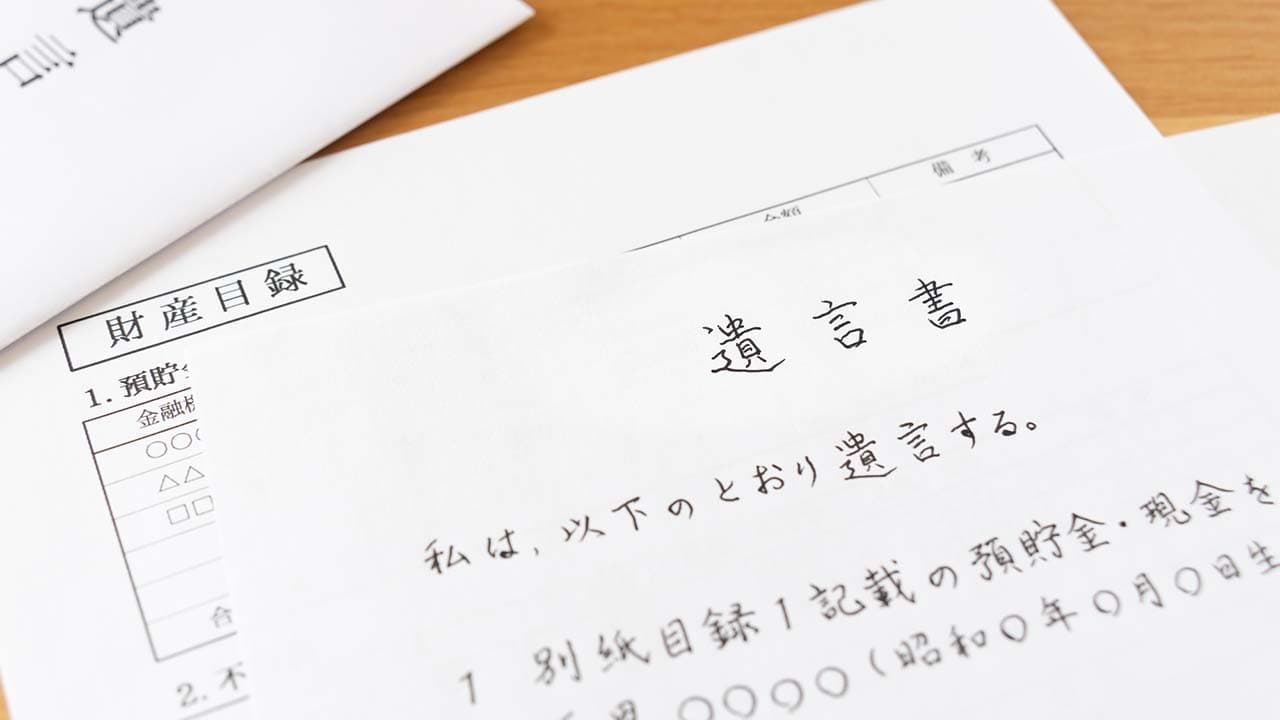 遺言
備考
金額
財産目録
1. 預貯
金融機
○○○
△△
□□
合
2. 不
遺言書
私は、以下のとおり遺言する。
1 別紙目録1記載の預貯金・現金を
○○○○(昭和○年○月○日生